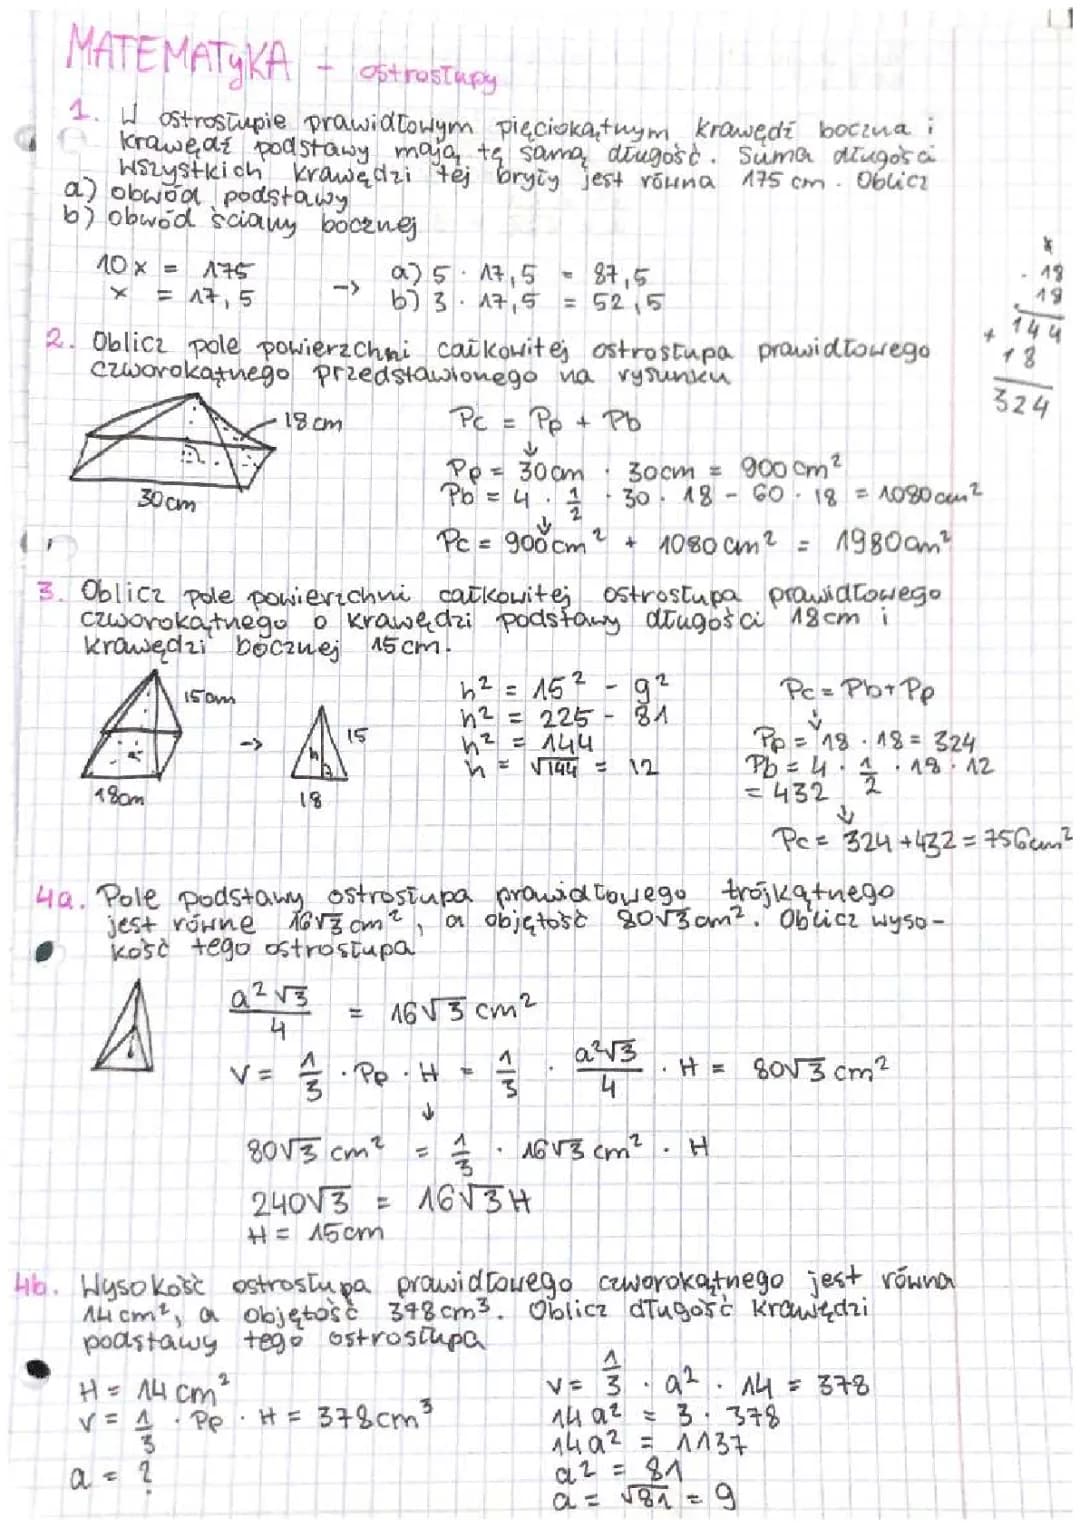 MATEMATYKA - ostrosłupy
1. W ostrosłupie prawidłowym pięciokątnym krawędź boczna i
krawędź podstawy mają tę samą długość. Suma długości
wszystkich krawędzi tej bryły jest równa 175 cm. Oblicz
a) obwód podstawy
b) obwód ściany bocznej
10x = 175
x = 17,5
->
a) 5 · 17,5 = 87,5
b) 3 · 17,5 = 52,5
· 18
· 18
+ 144
18
324
2. Oblicz pole powierzchni całkowitej ostrosłupa prawidłowego
czworokątnego przedstawionego na rysunku
18 cm
30 cm
Pc = Pp + Pb
↓
Pp = 30cm · 30cm = 900 cm²
Pb = 4 · 1/2 · 30 · 18 - 60 · 18 = 1080 cm²
↓
Pc = 900 cm² + 1080 cm² = 1980 cm²
3. Oblicz pole powierzchni całkowitej ostrosłupa prawidłowego
czworokątnego o krawędzi podstawy długości 18cm i
krawędzi bocznej 15cm.
15cm
18cm
->
15
h
18
h² = 15² - 9²
h² = 225 - 81
h² = 144
h = √144 = 12
Pc = Pb + Pp
↓
Pp = 18 · 18 = 324
Pb = 4 · 1/2 · 18 · 12
= 432
↓
Pc = 324 + 432 = 756 cm²
4a. Pole podstawy ostrosłupa prawidłowego trójkątnego
jest równe 16√3 cm², a objętość 80√3 cm². Oblicz wyso-
kość tego ostrosłupa
a²√3/4 = 16√3 cm²
V = 1/3 · Pp · H = 1/3 · a²√3/4 · H = 80√3 cm²
↓
80√3 cm² = 1/3 · 16√3 cm² · H
240√3 = 16√3 H
H = 15cm
4b. Wysokość ostrosłupa prawidłowego czworokątnego jest równa
14 cm², a objętość 378 cm³. Oblicz długość krawędzi
podstawy tego ostrosłupa
H = 14 cm²
V = 1/3 · Pp · H = 378 cm³
a = ?
V = 1/3 · a² · 14 = 378
14a² = 3 · 378
14a² = 1137
a² = 81
a = √81 = 9